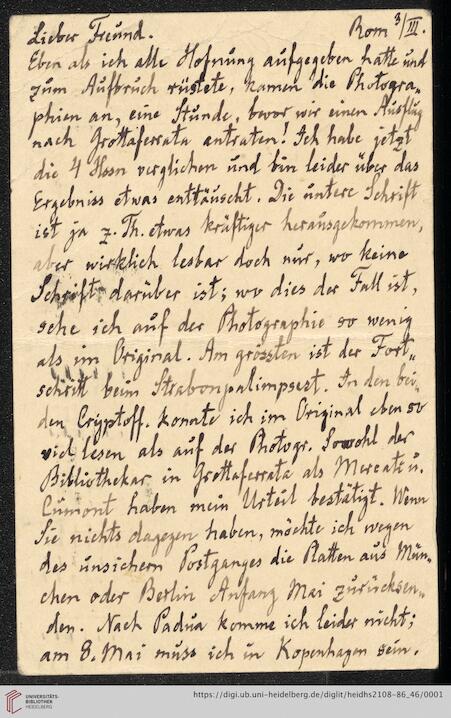 Lieber Freund. Rom 3/III.
Eben als ich alle Hofnung aufgegeben hatte und
zum Aufbruch rüstete, kamen die Photogra=
phien an, eine Stunde, bevor wir einen Ausflug
nach Grottaferrata antraten! Ich habe jetzt
die 4 Hssn verglichen und bin leider über das
Ergebniss etwas enttäuscht. Die untere Schrift
ist ja z. Th. etwas kräftiger herausgekommen,
aber wirklich lesbar doch nur, wo keine
Schrift darüber ist; wo dies der Fall ist,
sehe ich auf der Photographie so wenig
als im Original. Am grössten ist der Fort=
schritt beim Strabonpalimpsest. In den bei=
den Cryptoff. konnte ich im Original eben so
viel lesen als auf der Photogr. Sowohl der
Bibliothekar in Grottaferrata als Mercati u.
Cumont haben mein Urteil bestätigt. Wenn
Sie nichts dagegen haben, möchte ich wegen
des unsichern Postganges die Platten aus Mün=
chen oder Berlin Anfang Mai zurücksen=
den. Nach Padua komme ich leider nicht;
am 8. Mai muss ich in Kopenhagen sein.
UNIVERSITÄTS-
BIBLIOTHEK
HEIDELBERG
https://digi.ub.uni-heidelberg.de/diglit/heidhs2108-86_46/0001